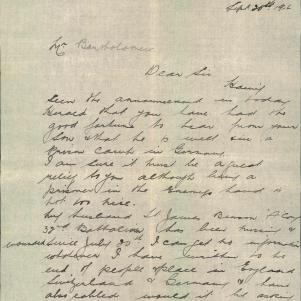 Sept 20th 1916
Mr Bartholomew
Dear Sir
Having
seen the announcement in today
Herald that you have had the
good fortune to hear from your
son that he is well in a
Prison Camp in Germany
I am sure it must be a great
relief to you although being a
prisoner in the Enemys hand is
not too nice.
My husband Lt James Benson A Coy
32nd Battalion, has been missing &
wounded since July 20th I can get no information
whatever I have written to no
end of people & place in England
Switzerland & Germany & have
also cabled would it be asking